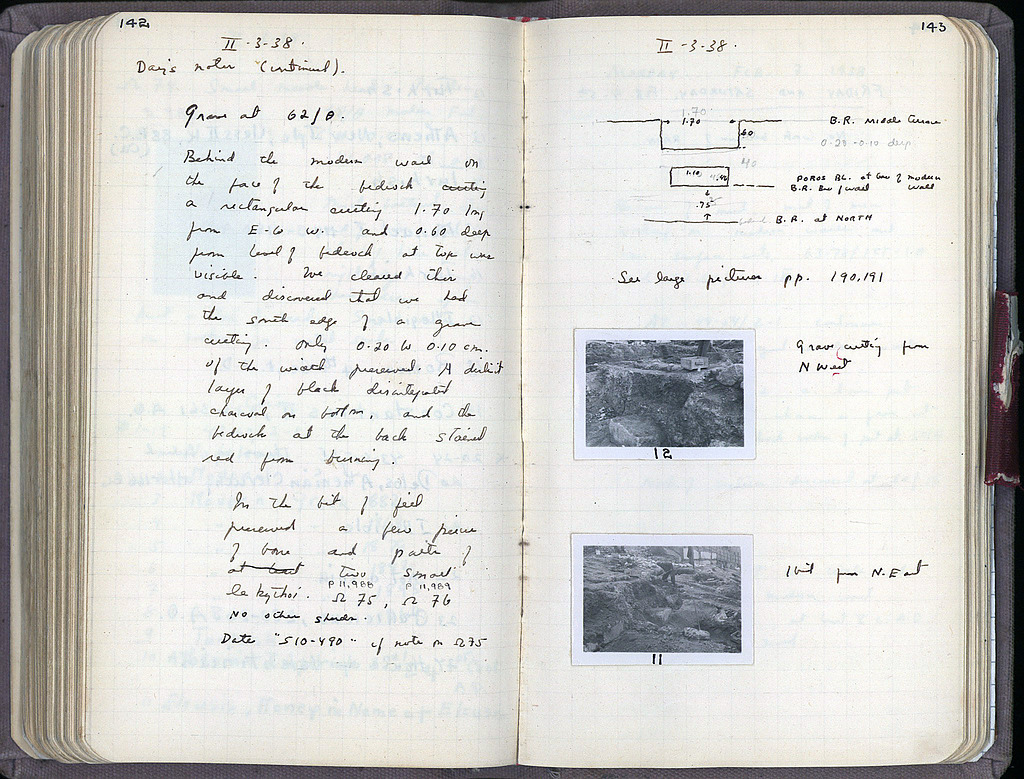 142
II - 3 - 38.
Day's notes (continued).
Grave at 62/Θ.
Behind the modern wall on
the face of the bedrock cutting
a rectangular cutting 1.70 long
from E-W w. and 0.60 deep
from level of bedrock at top was
visible. We cleared this
and discovered that we had
the south edge of a grave
cutting. Only 0.20 to 0.10 cm.
of the width preserved. A distinct
layer of black disintegrated
charcoal on bottom, and the
bedrock at the back stained
red from burning.
In the bit of fill
preserved a few pieces
of bone and parts of
at least two small
P 11,988 P 11,989
lekythoi. Ω 75, Ω 76
No other sherds.
Date "510-490" cf note on Ω75
143
II - 3 - 38.
1.70
1.70
60
B.R. Middle Terrace
0.20-0.10 deep
40
1.10 .40
POROS BL. at line of modern
wall
B.R. line of wall
.75
B.R. at NORTH
See large pictures pp. 190, 191
Grave cutting from
N West
12
11
from N. East